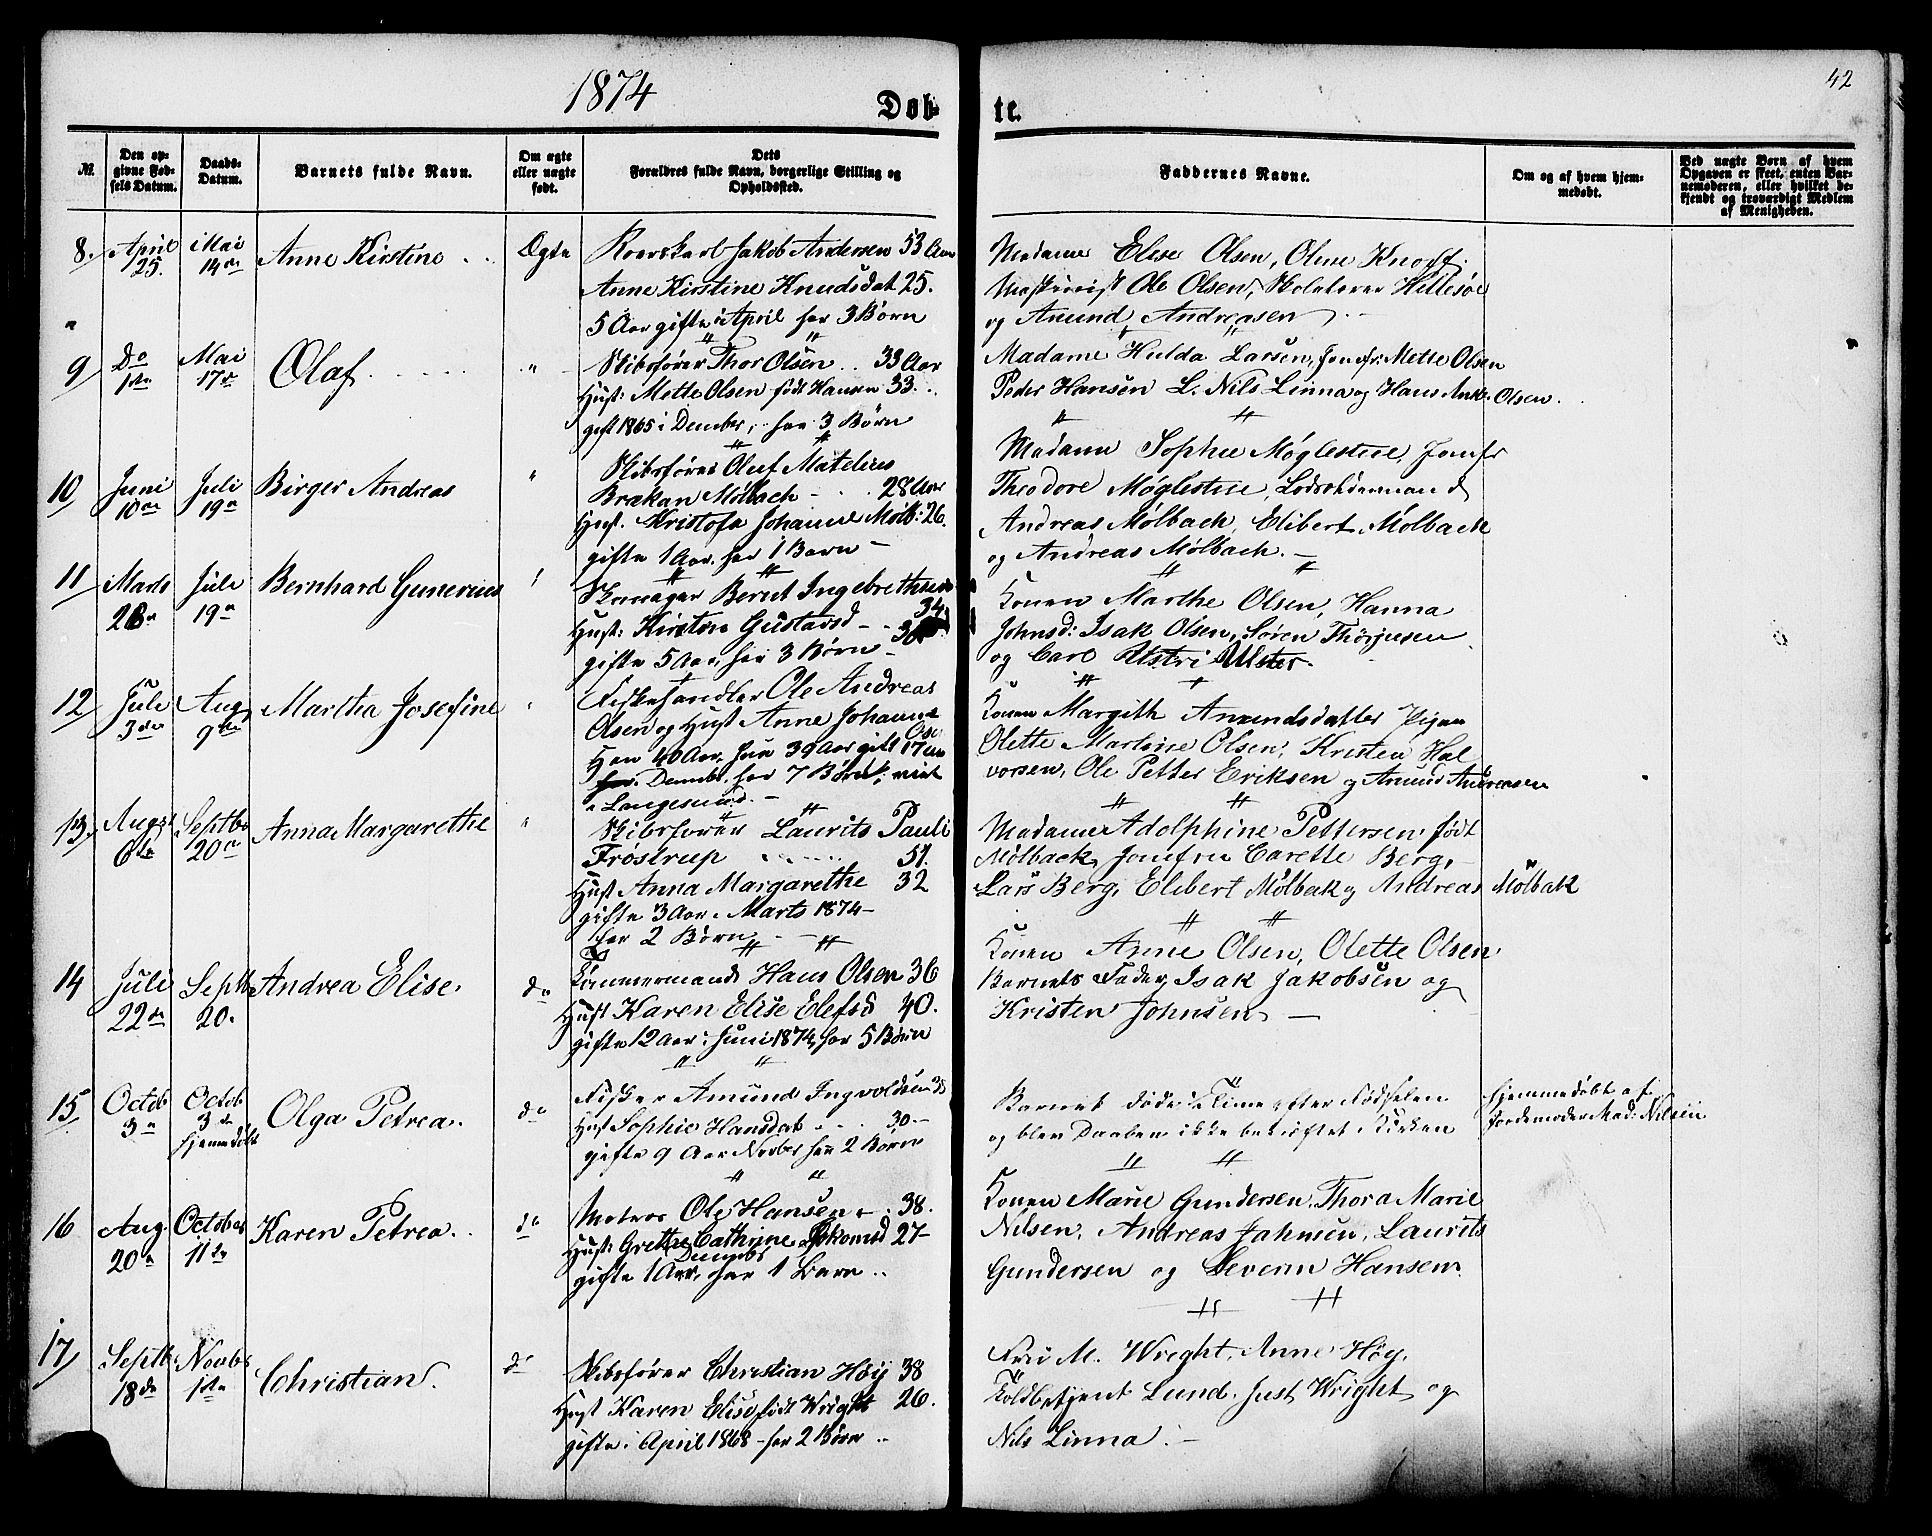 1874
42
Døb-
te.
№
Den op-
givne Fød-
sels Datum.
Daabs-
Datum.
Barnets fulde Navn.
Om ægte
eller uægte
født.
Dets
Forældres fulde Navn, borgerlige Stilling og
Opholdssted.
Faddernes Navne.
Om og af hvem hjem-
medøbt.
Ved uægte Børn af hvem
Opgaven er skeet, enten Bar-
nemoderen, eller hvilket be-
kjendt og troværdigt Medlem
af Menigheden.
8.
April
25.
Mai
14de
Anne Kirstine
Ægte
Jakob Andersen 53 Aar
Anne Kirstine Knudsdat 25.
5 Aar gifte i April har 3 Børn
Madame Elise Olsen, Oline Knoff.
Ole Olsen, Skolelærer Hillesøe
og Amund Andreasen
9
Do
1ste
Mai
17de
Olaf
"
Skibsfører Thor Olsen 33 Aar
Hust: Mette Olsen født Hansen 33.
gift 1865 i Decmber, har 3 Børn
Madame Hulda Larsen, Jomfr: Mette Olsen
Peder Hansen L. Nils Linna og Hans Olsen.
10
Juni
10de
Juli
19de
Birger Andreas
"
Skibsfører Oluf Matelius
Brakan Mølbach 28 Aar
Hust. Kristofa Johanne Mølb: 26.
gifte 1 Aar. har 1 Barn
Madam Sophie Møglestue, Jomfr
Theodore Møglestue, Lodsoldermand
Andreas Mølbach, Elibert Mølback
og Andreas Mølbach.
11
Marts
28de
Juli
19de
Bernhard Gunerius
"
Skomager Bernt Ingebrethsen
34
Hust: Kirstine Gustavsd 30
gifte 5 Aar, har 3 Børn
Konen Marthe Olsen, Hanna
Johnsd: Isak Olsen, Søren Thorjusen
og Carl Ulster
12
Juli
3die
Aug
9de
Martha Josefine
"
Fiskehandler Ole Andreas
Olsen og Hust Anne Johanne
Han 40 Aar, hun 39 Aar gift 17
Decmbr. har 7 Børn, viet
i Langesund.
Konen Margith Amundsdatter Pigen
Olette Martine Olsen, Kristen Hal
vorsen, Ole Petter Eriksen og Amund Andreasen
13.
Augst
6te
Septbr
20de
Anna Margarethe
"
Skibsfører Laurits Pauli
Frøstrup 51.
Hust Anna Margarethe 32
gifte 3 Aar i Marts 1874
har 2 Børn
Madame Adolphine Pettersen født
Mølback, Jomfru Carette Berg,
Lars Berg, Elibert Mølbak og Andreas Mølbak
14
Juli
22de
Septb
20.
Andrea Elise.
do
Tømmermand Hans Olsen 36
Hust Karen Elise Elefsd 40.
gifte 12 Aar i Juni 1874, har 5 Børn
Konen Anne Olsen, Olette Olsen
Barnets Fader, Isak Jakobsen og
Kristen Johnsen
15
Octob
3de
Octob
3de
hjemmedøbt
Olga Petrea.
do
Fisker Amund Ingvoldsen 38
Hust Sophie Hansdat 30
gifte 9 Aar Novbr har 2 Børn
Barnet døde Time efter Fødselen
og blev Daaben ikke bekræftet i Kirken
hjemmedøbt af
Jordemoder Mad: Nilsen
16
Aug
20de
October
11te
Karen Petrea.
do
Matros Ole Hansen 38.
Hust: Grethe Cathrine 27
Decmbr
gifte 1 Aar, har 1 Barn
Konen Marie Gundersen, Thora Marie
Nilsen, Andreas Jahnsen, Laurits
Gundersen og Severin Hansen.
17
Septbr
18de
Novbr
1ste
Christian.
do
Skibsfører Christian Høy 38
Hust Karen Elise født Wright 26.
gifte i April 1868 har 2 Børn
Fru M. Wright, Anne Høy,
Toldbetjent Lund, Just Wright og
Nils Linna.